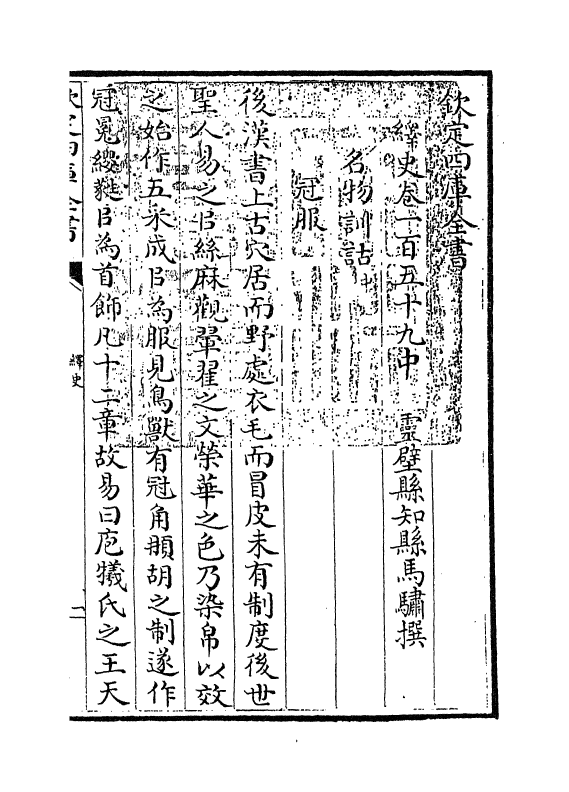 欽定四庫全書
繹史卷一百五十九中　靈壁縣知縣馬驌撰
名物訓詁中
冠服
後漢書上古穴居而野處衣毛而冒皮未有制度後世
聖人易之㠯絲麻觀翬翟之文榮華之色乃染帛以效
之始作五采成㠯為服見鳥獸有冠角䫇胡之制遂作
冠冕纓蕤㠯為首飾凡十二章故易曰庖犧氏之王天
欽定四庫全書
繹史